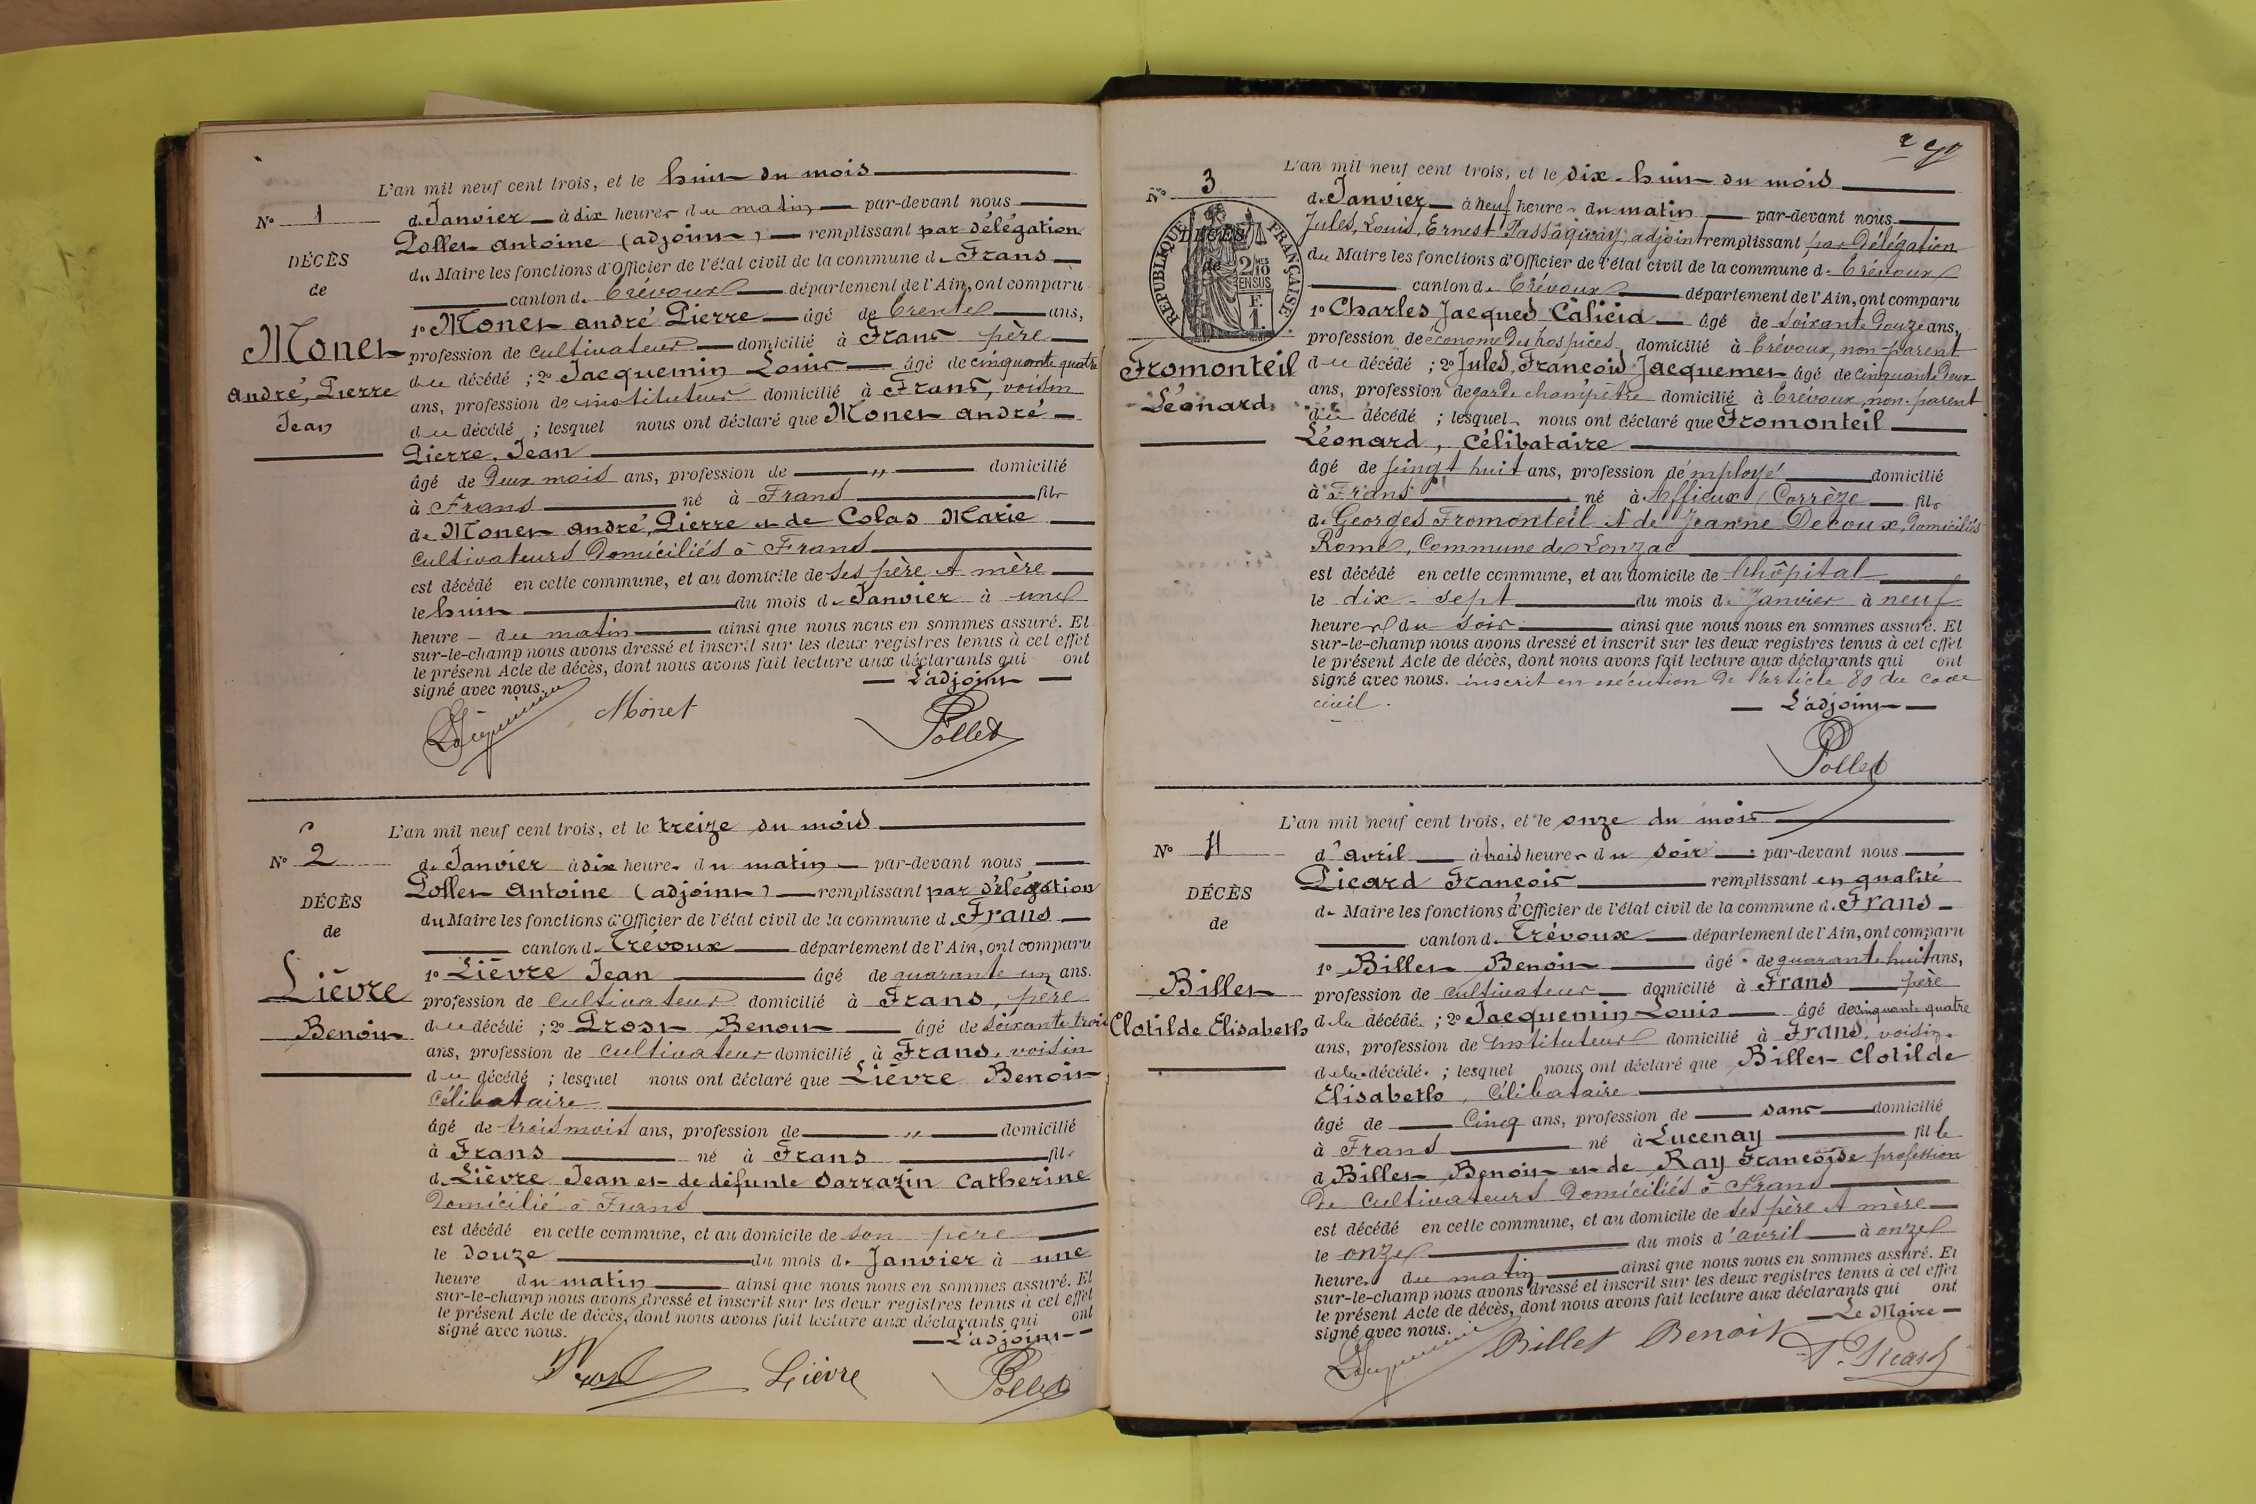 N° 1
DÉCÈS
de
Monet
André, Pierre
Jean
L'an mil neuf cent trois, et le huit du mois
de Janvier à dix heures du matin par-devant nous
Pollet Antoine (adjoint) remplissant par délégation
du Maire les fonctions d'Officier de l'état civil de la commune de Frans
canton de Trévoux département de l'Ain, ont comparu
1° Monet André Pierre âgé de trente ans,
profession de cultivateur domicilié à Frans père
du décédé ; 2° Jacquemin Louis âgé de cinquante quatre
ans, profession de instituteur domicilié à Frans, voisin
du décédé ; lesquel nous ont déclaré que Monet André
Pierre, Jean
âgé de deux mois ans, profession de „ domicilié
à Frans né à Frans fils
de Monet André, Pierre et de Colas Marie
cultivateurs domiciliés à Frans
est décédé en cette commune, et au domicile de ses père et mère
le huit du mois de Janvier à une
heure du matin ainsi que nous nous en sommes assuré. Et
sur-le-champ nous avons dressé et inscrit sur les deux registres tenus à cet effet
le présent Acte de décès, dont nous avons fait lecture aux déclarants qui ont
signé avec nous. L'adjoint
Jacquemin Monet Pollet
N° 2
DÉCÈS
de
Lièvre
Benoit
L'an mil neuf cent trois, et le treize du mois
de Janvier à dix heures du matin par-devant nous
Pollet Antoine (adjoint) remplissant par délégation
du Maire les fonctions d'Officier de l'état civil de la commune de Frans
canton de Trévoux département de l'Ain, ont comparu
1° Lièvre Jean âgé de quarante un ans.
profession de cultivateur domicilié à Frans, père
du décédé ; 2° Prost Benoit âgé de soixante trois
ans, profession de cultivateur domicilié à Frans, voisin
du décédé ; lesquel nous ont déclaré que Lièvre Benoit
célibataire
âgé de trois mois ans, profession de „ domicilié
à Frans né à Frans fils
de Lièvre Jean et de défunte Sarrazin Catherine
domicilié à Frans
est décédé en cette commune, et au domicile de son père
le douze du mois de Janvier à une
heure du matin ainsi que nous nous en sommes assuré. Et
sur-le-champ nous avons dressé et inscrit sur les deux registres tenus à cet effet
le présent Acte de décès, dont nous avons fait lecture aux déclarants qui ont
signé avec nous. L'adjoint
Prost Lièvre Pollet
N° 3
RÉPUBLIQUE FRANÇAISE
DÉCÈS
de
2/10 EN SUS
Fromonteil
Léonard
L'an mil neuf cent trois, et le dix-huit du mois
de Janvier à neuf heures du matin par-devant nous
Jules, Louis, Ernest Passaquay, adjoint remplissant par délégation
du Maire les fonctions d'Officier de l'état civil de la commune de Trévoux
canton de Trévoux département de l'Ain, ont comparu
1° Charles Jacques Calicia âgé de soixante douze ans,
profession de économe des hospices domicilié à Trévoux, non parent
du décédé ; 2° Jules, François Jacquemet âgé de cinquante deux
ans, profession de garde champêtre domicilié à Trévoux, non parent
du décédé ; lesquels nous ont déclaré que Fromonteil
Léonard, célibataire
âgé de vingt huit ans, profession d'employé domicilié
à Frans né à Affieux (Corrèze fils
de Georges Fromonteil et de Jeanne Decoux, domiciliés
Rome, Commune de Lonzac
est décédé en cette commune, et au domicile de l'hôpital
le dix-sept du mois de Janvier à neuf
heures du soir ainsi que nous nous en sommes assuré. Et
sur-le-champ nous avons dressé et inscrit sur les deux registres tenus à cet effet
le présent Acte de décès, dont nous avons fait lecture aux déclarants qui ont
signé avec nous. inscrit en exécution de l'article 80 du code
civil.
L'adjoint
Pollet
N° 4
DÉCÈS
de
Billet
Clotilde Elisabeth
L'an mil neuf cent trois, et le onze du mois
d'avril à trois heures du soir par-devant nous
Picard François remplissant en qualité
de Maire les fonctions d'Officier de l'état civil de la commune de Frans
canton de Trévoux département de l'Ain, ont comparu
1° Billet Benoit âgé de quarante huit ans,
profession de cultivateur domicilié à Frans père
de la décédée ; 2° Jacquemin Louis âgé de cinquante quatre
ans, profession de instituteur domicilié à Frans, voisin
de la décédée ; lesquel nous ont déclaré que Billet Clotilde
Elisabeth, célibataire
âgé de Cinq ans, profession de sans domicilié
à Frans né à Lucenay fille
de Billet Benoit et de Ray Françoise profession
de cultivateurs domiciliés à Frans
est décédé en cette commune, et au domicile de ses père et mère
le onze du mois d'avril à onze
heures du matin ainsi que nous nous en sommes assuré. Et
sur-le-champ nous avons dressé et inscrit sur les deux registres tenus à cet effet
le présent Acte de décès, dont nous avons fait lecture aux déclarants qui ont
signé avec nous. Le Maire
Jacquemin Billet Benoit F. Picard